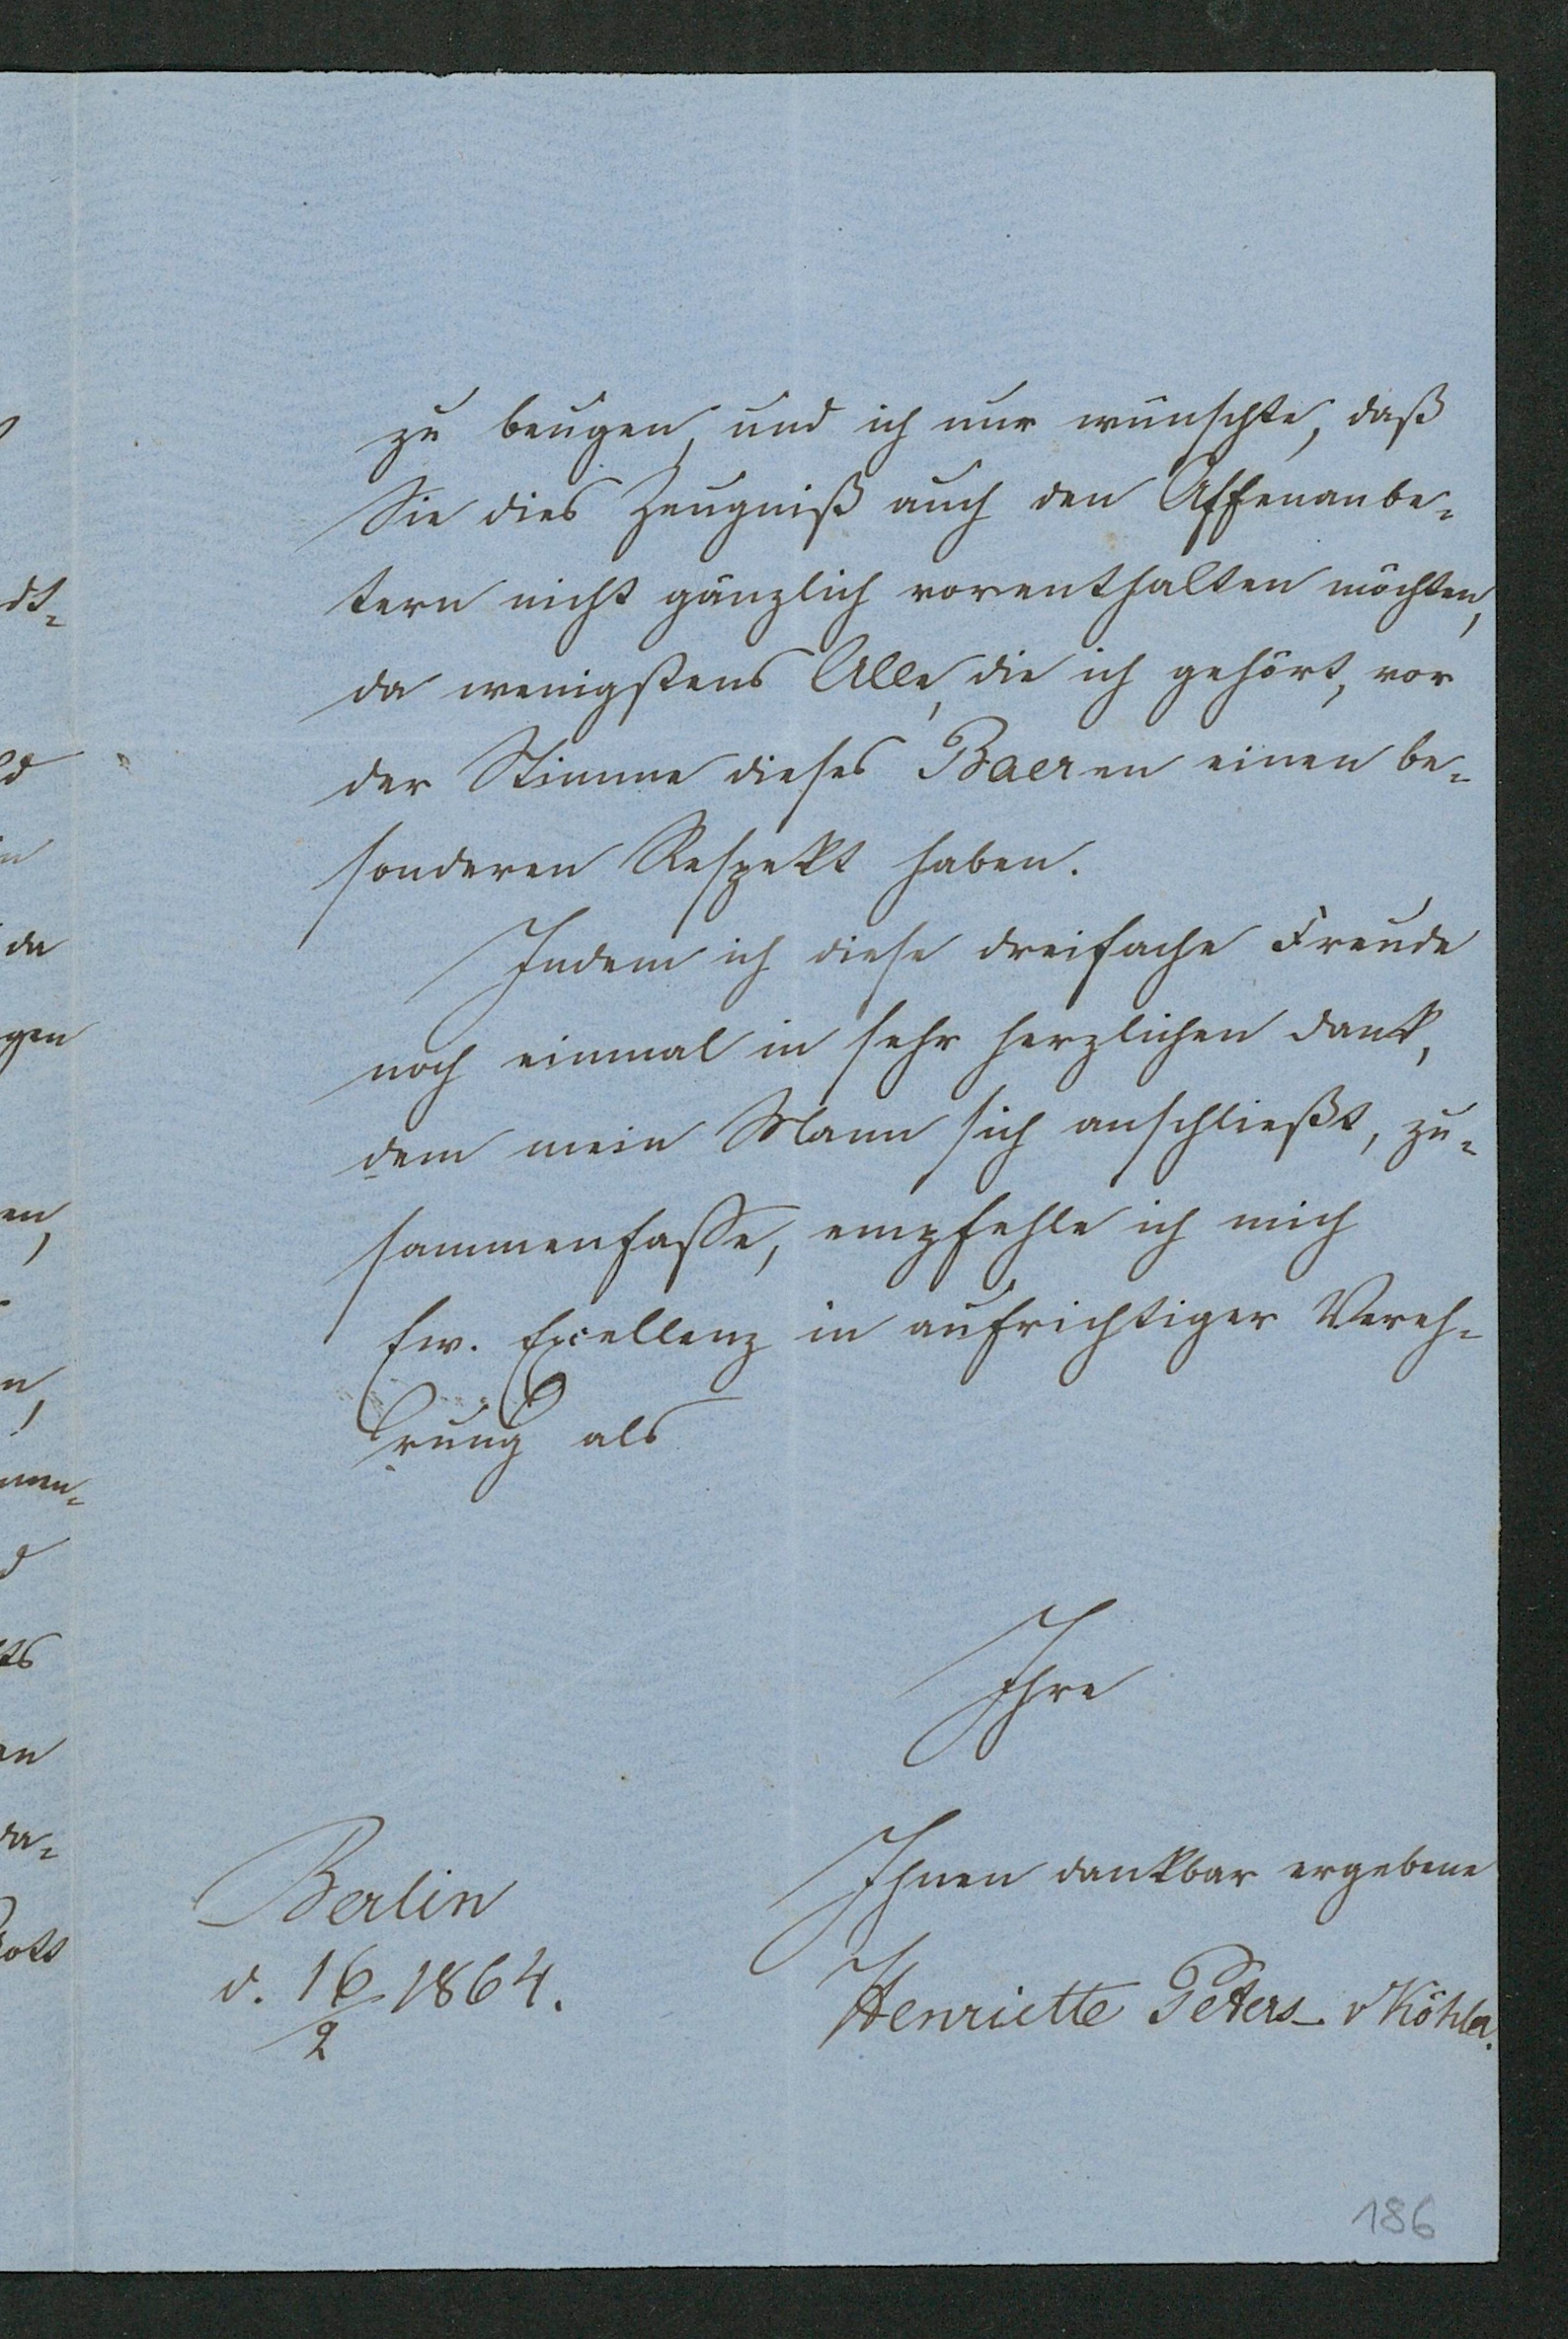 zu beugen, und ich nur wünschte, daß
Sie dies Zeugniß auch den Affenanbe-
tern nicht gänzlich vorenthalten möchten,
da wenigstens Alle, die ich gehört, vor
der Stimme dieses Baeren einen be-
sonderen Respekt haben.
Indem ich diese dreifache Freude
noch einmal in sehr herzlichen Dank,
dem mein Mann sich anschließt, zu-
sammenfasse, empfehle ich mich
Ew. Excellenz in aufrichtiger Vereh-
rung als
Ihre
Ihnen dankbar ergebene
Henriette Peters - v Köhler.
Berlin
d. 16/2 1864.
186